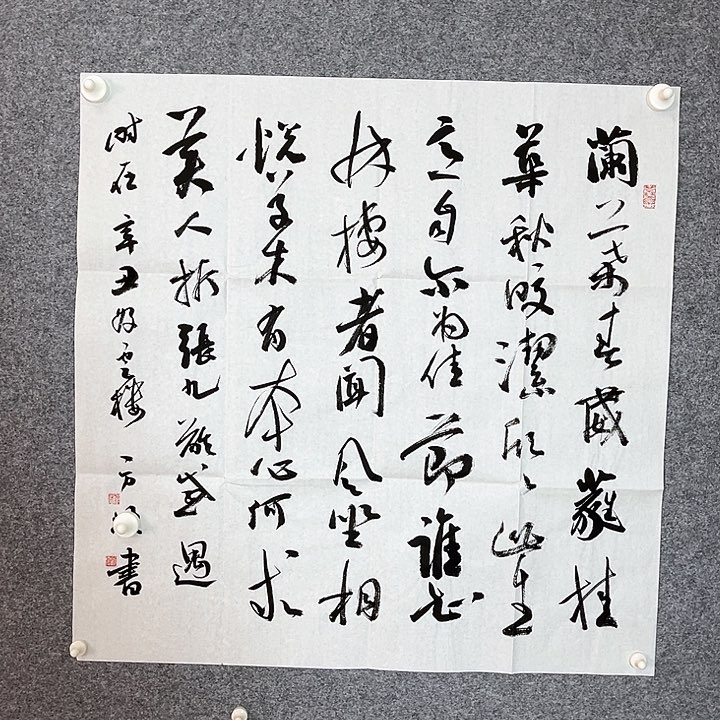 蘭葉春葳蕤桂
華秋皎潔欣〻此生
意自尔为佳節誰知
林棲者聞风坐相
悦草木有本心何求
美人折張九齡感遇
时在辛丑 樓 一方 書